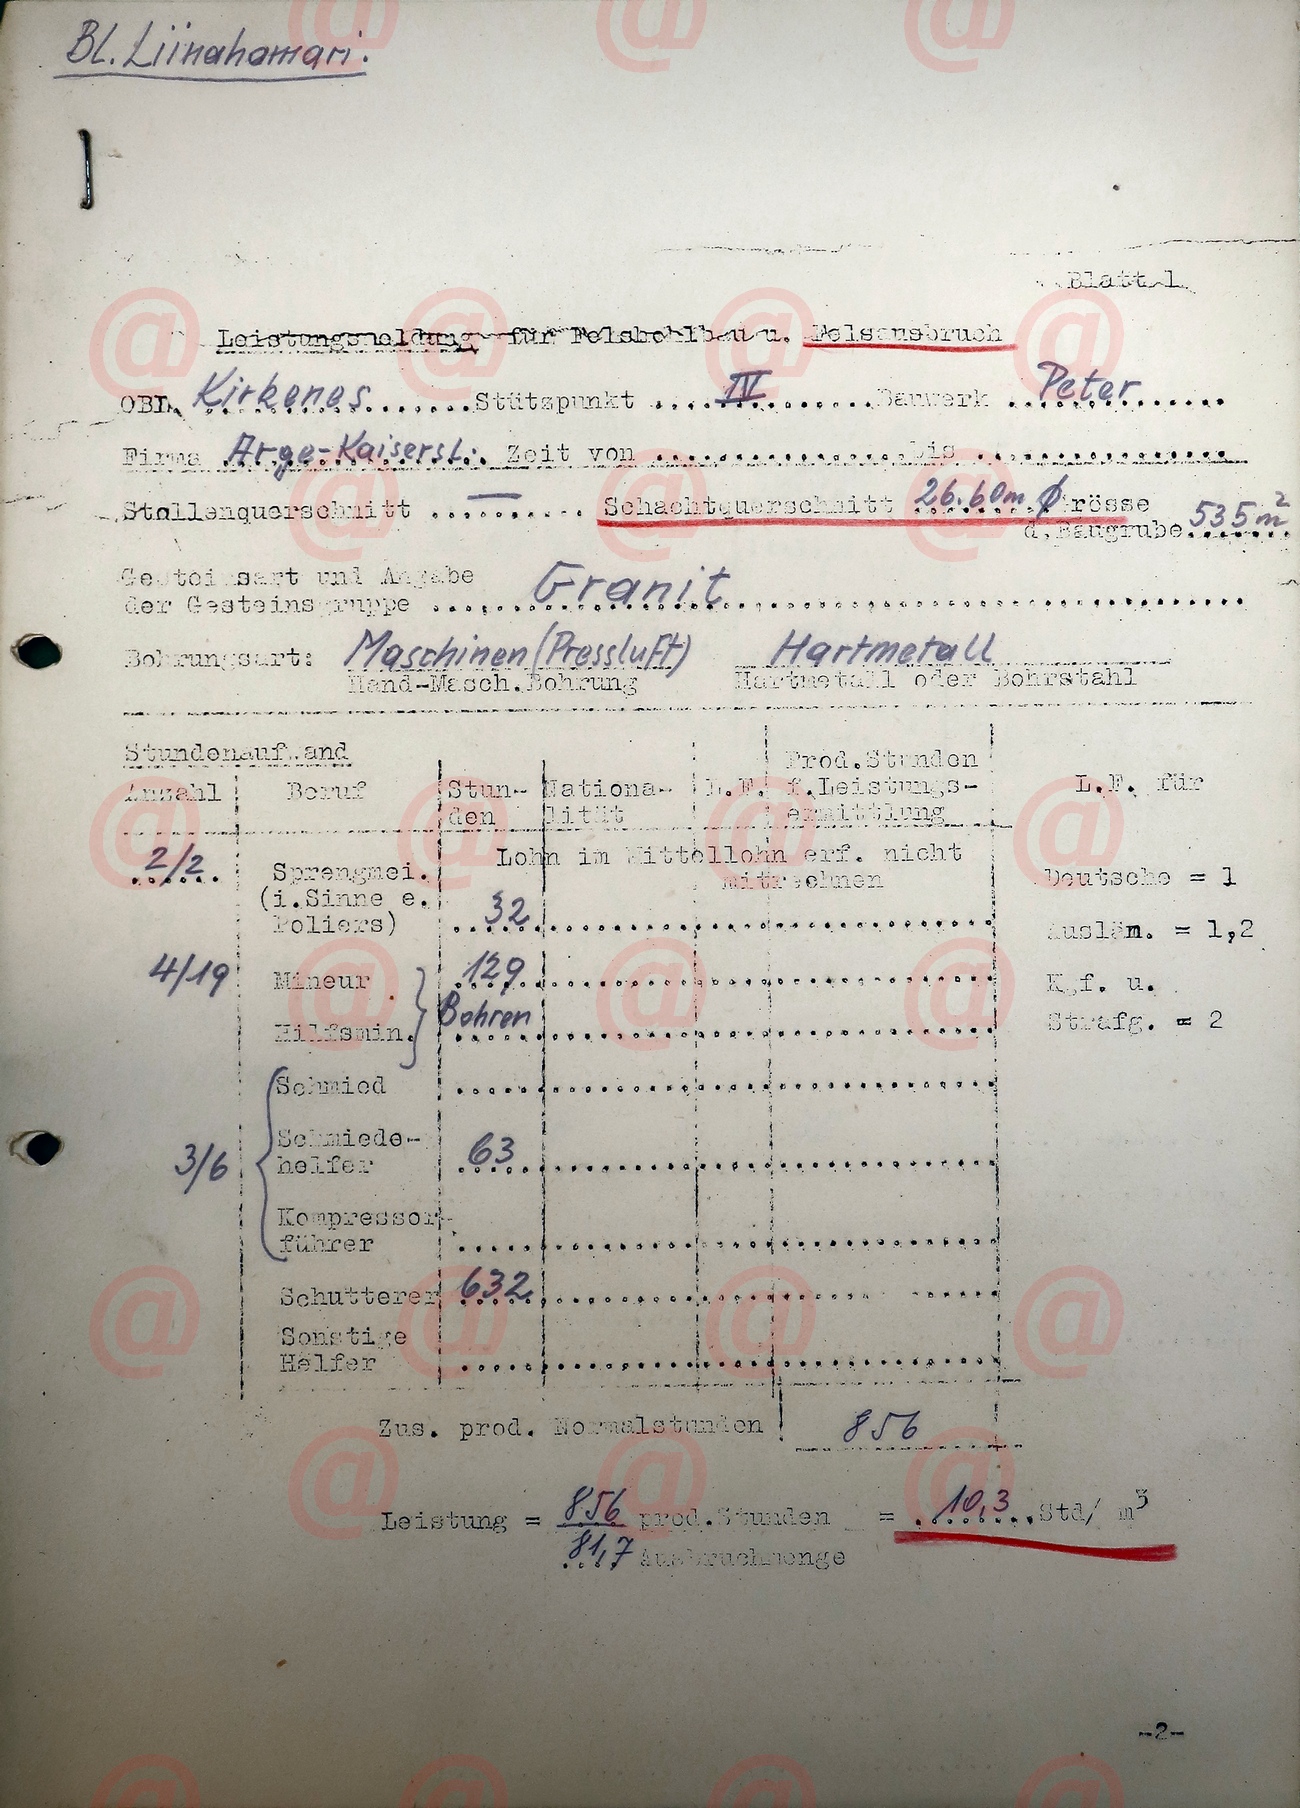 Bl. Liinahamari.
Blatt 1
Leistungsmeldung für Felshohlbau u. Felsausbruch
OBL Kirkenes Stützpunkt IV Bauwerk Peter
Firma Arge-Kaisersl. Zeit von bis
Stollenquerschnitt — Schachtquerschnitt 26.60m Ø Grösse
d. Baugrube 535 m²
Gesteinsart und Angabe
der Gesteinsgruppe Granit
Bohrungsart: Maschinen (Pressluft) Hartmetall
Hand-Masch.Bohrung Hartmetall oder Bohrstahl
Stundenaufwand
Anzahl Beruf Stunden Nationalität L.F. Prod.Stunden f.Leistungsermittlung L.F. für
2/2 Sprengmei. Lohn im Mittellohn erf. nicht
mitrechnen Deutsche = 1
(i.Sinne e.
Poliers) 32 Auslän. = 1,2
4/19 Mineur 129 K.f. u.
Hilfsmin. Bohren Strafg. = 2
Schmied
3/6 Schmiede-
helfer 63
Kompressor-
führer
Schutterer 632
Sonstige
Helfer
Zus. prod. Normalstunden 856
Leistung = 856 prod.Stunden = 10,3 Std/ m³
81,7 Ausbruchmenge
-2-